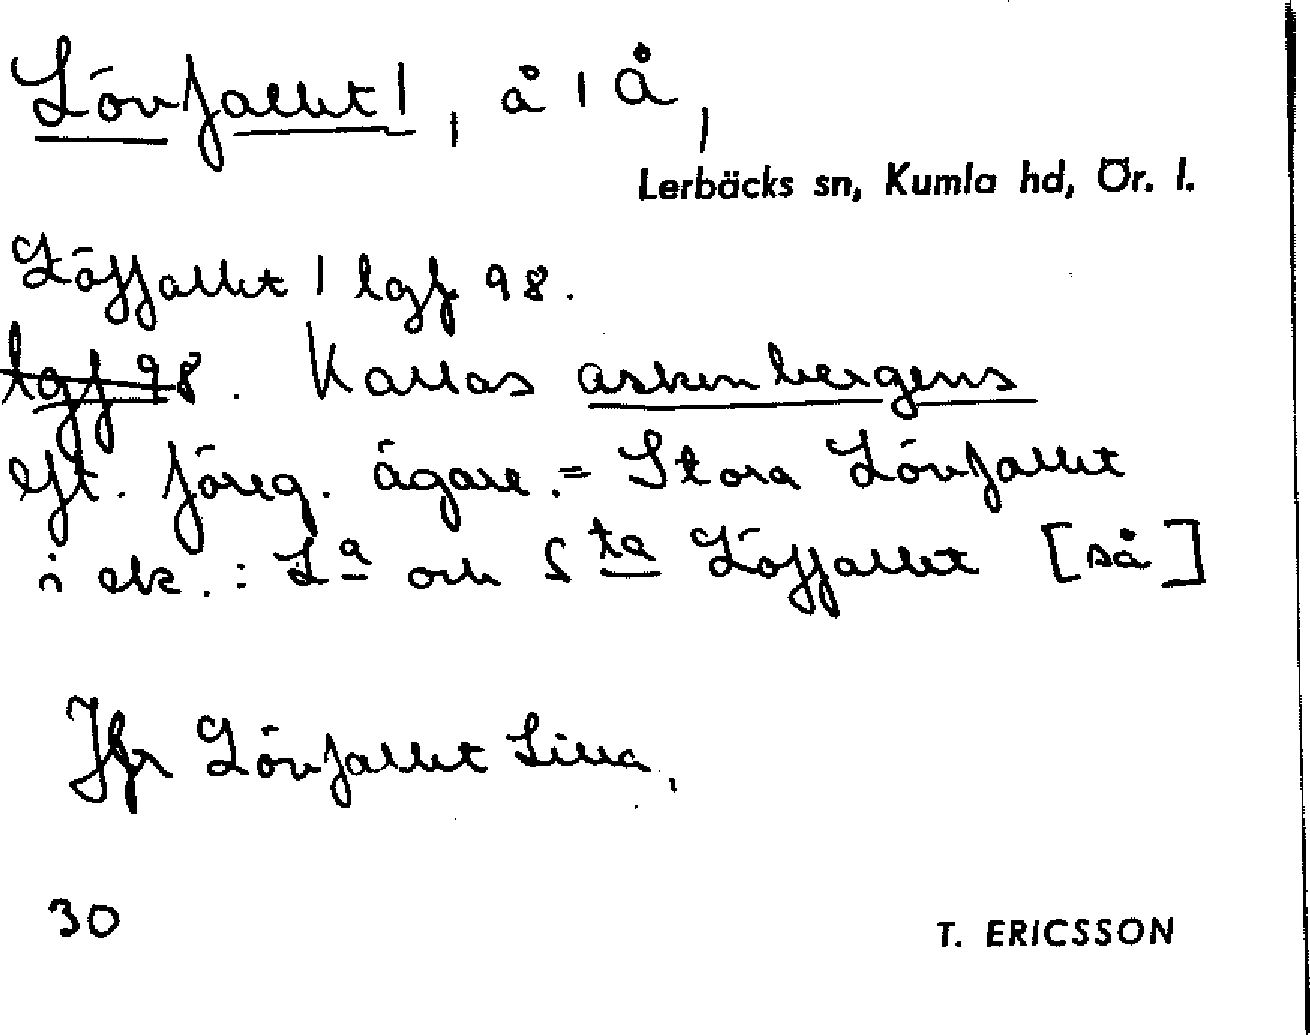 Lövfallet 1, å 1 Å,
Lerbäcks sn, Kumla hd, Ör. l.
Löffallet 1 lgf 98.
lgf 98. Kallas askenbergens
eft. föreg. ägare. = Stora Lövfallet
i ek.: La och Sta Löffallet [så]
Jfr Lövfallet Lilla,
30
T. ERICSSON